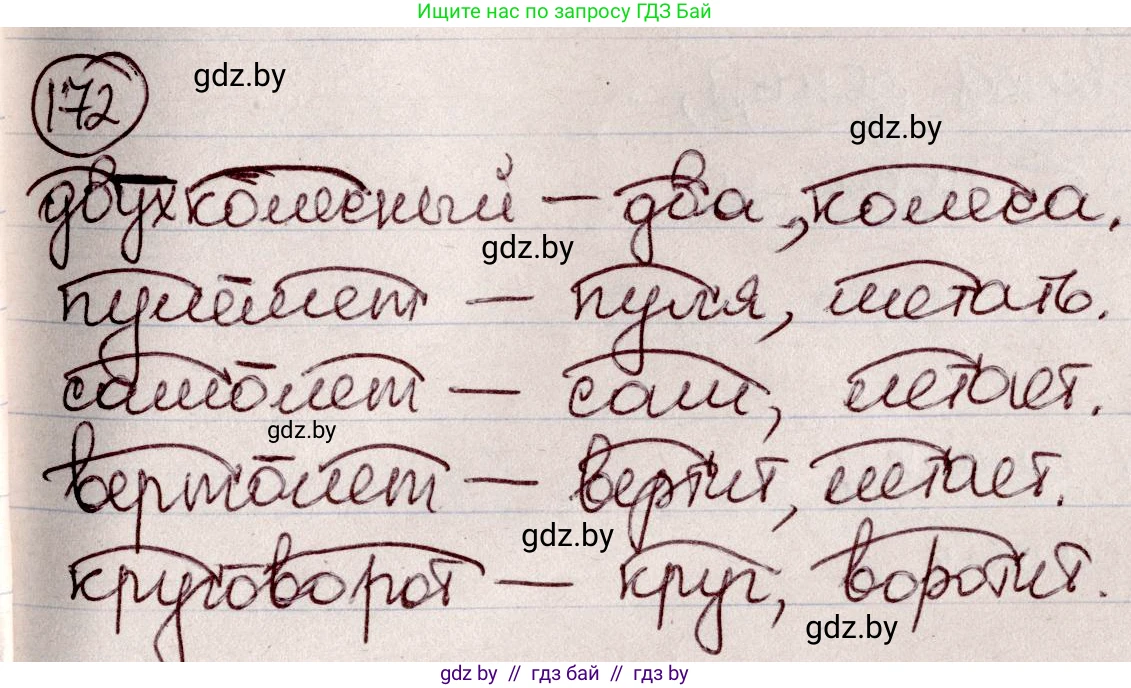 Ищите нас по запросу ГДЗ Бай
172
gdz.by
gdz.by
двухколесный – два, колеса.
gdz.by
пулемет – пуля, метать.
самолет – сам, летает.
gdz.by
вертолет – вертит, летает.
gdz.by
круговорот – круг, воротит.
gdz.by
gdz by // гдз бай // гдз by